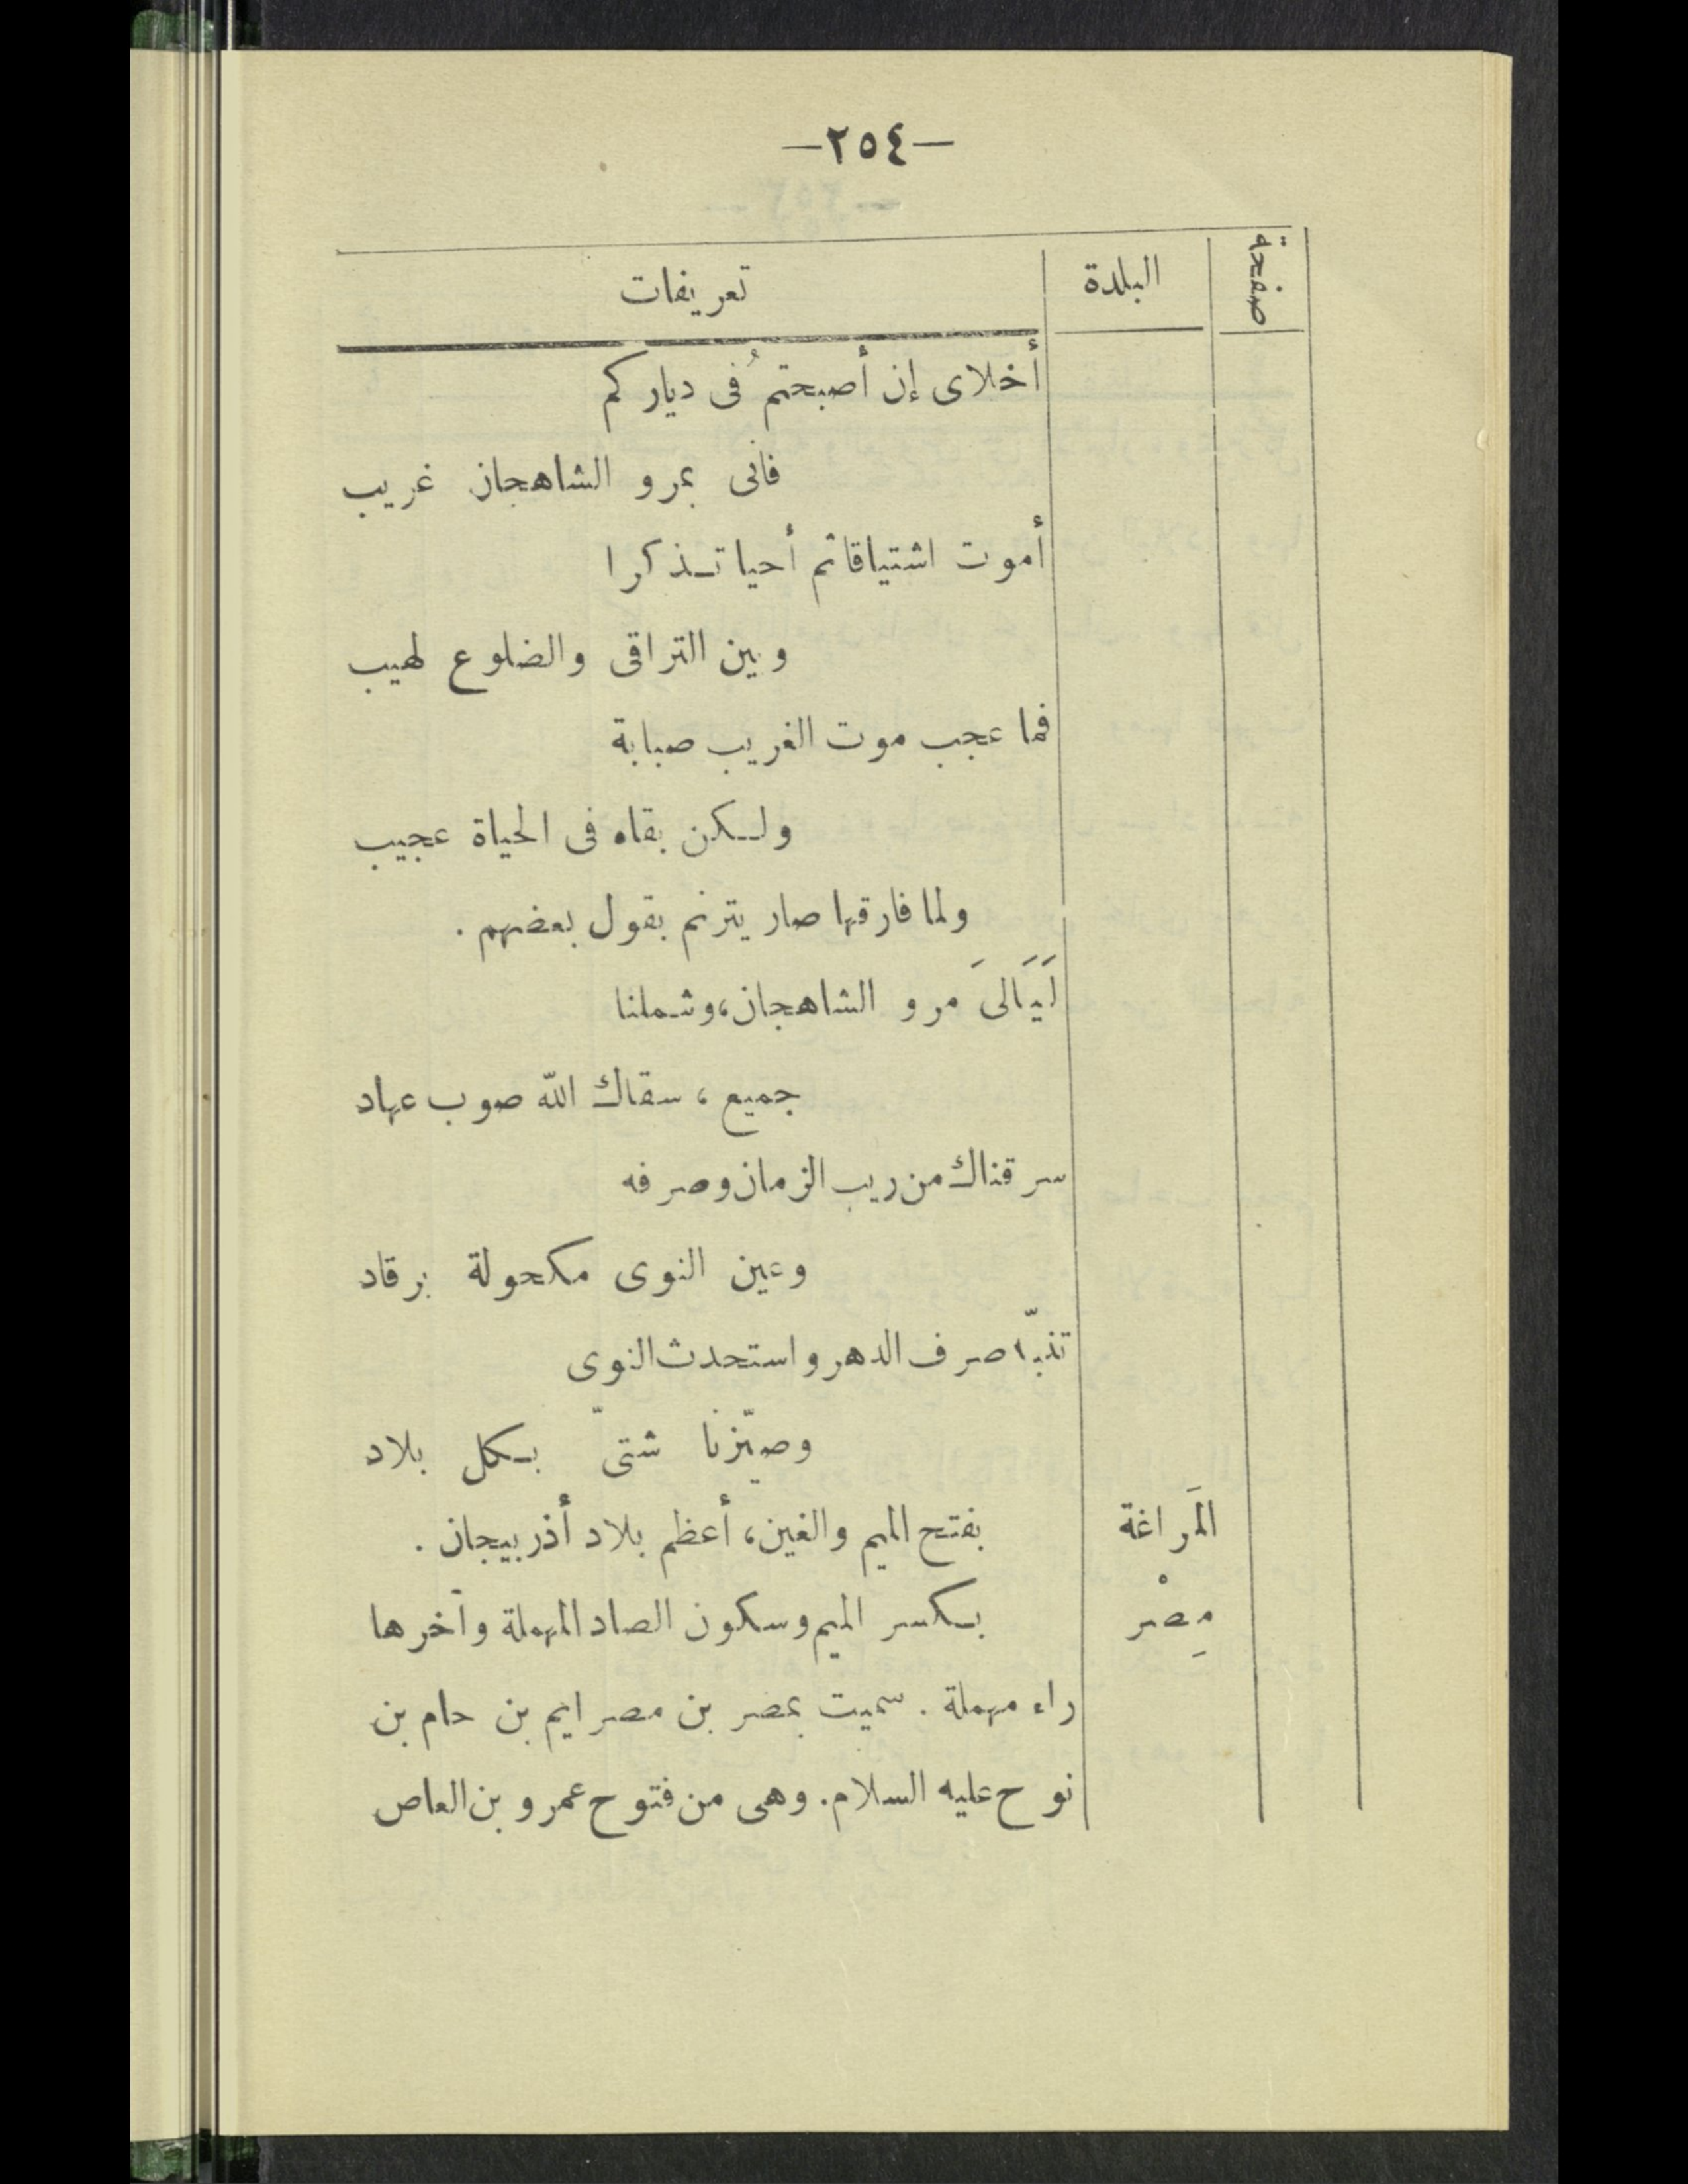 —٢٥٤—
صفحة البلدة تعريفات
أخلاى إن أصبحتمُ فى دياركم
فانى بمرو الشاهجان غريب
أموت اشتياقا ثم أحيا تذكرا
وبين التراقى والضلوع لهيب
فما عجب موت الغريب صبابة
ولكن بقاه فى الحياة عجيب
ولما فارقها صار يترنم بقول بعضهم .
لَيَالىَ مرو الشاهجان، وشملنا
جميع ، سقاك الله صوب عهاد
سرقناك من ريب الزمان وصرفه
وعين النوى مكحولة برقاد
صرف الدهر واستحدث النوى
وصيّرنا شتىّ بكل بلاد
المَراغة بفتح الميم والغين، أعظم بلاد أذربيجان .
مِصْر بكسر الميم وسكون الصاد المهملة وآخرها
راء مهملة . سميت بمصر بن مصرايم بن حام بن
نوح عليه السلام. وهى من فتوح عمرو بن العاص